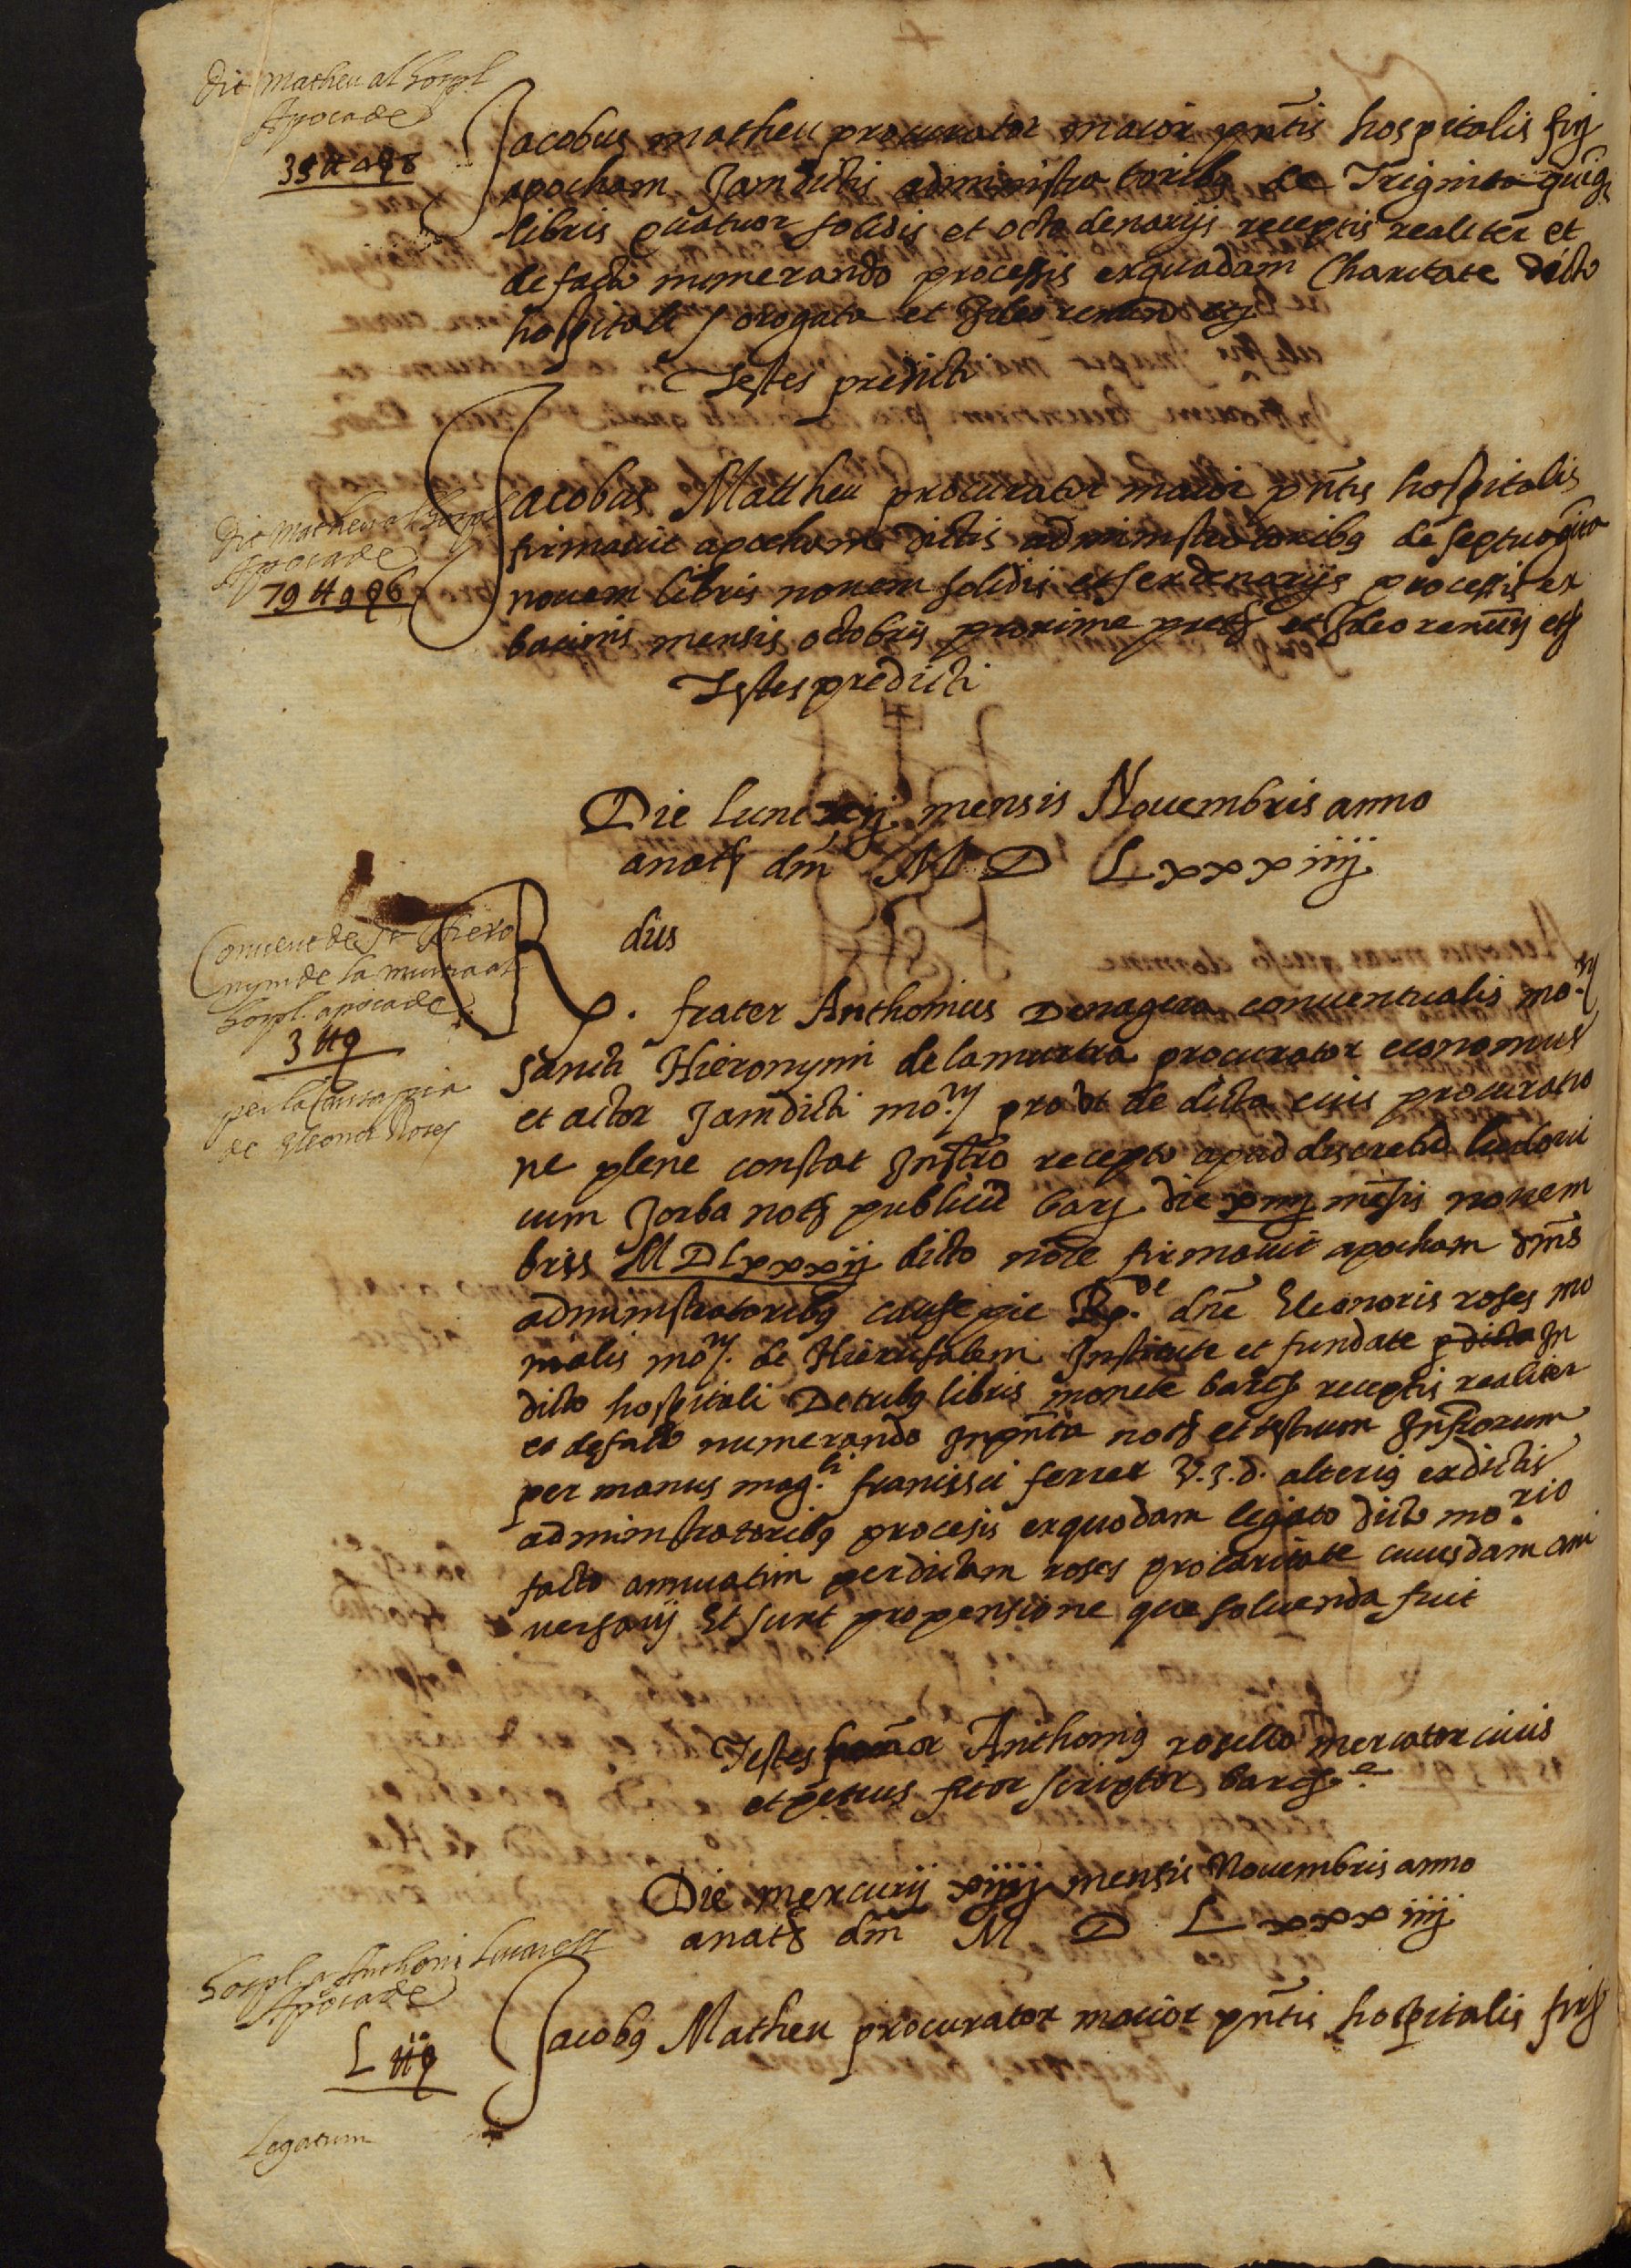 Dit Matheu al hospl
Apocade
35 ₶ 4 ß 8
Jacobus matheu procurator maior pntis hospitalis firꝭ
apocham Jamdictis administratoribꝰ de Triginta quīqꝫ
libris quatuor solidis et octo denarijs receptis realiter et
de facto numerando processis ex quadam Charitate dicto
hospitali
Testes predicti
Dit Matheu al hospl
Apocade
79 ₶ 9 ß 6
Jacobus Mattheu procurator maior pntis hospitalis
firmauit apocham dictis administratoribꝰ de septuogīta
nouem libris nouem solidis et sex denarijs processis ex
bacinis mensis octobris proxime
Testes predicti
Die lune xij mensis Nouembris anno
anatꝭ dm̄ M D Lxxxiiij
Conuent de St Hiero
nym de la murtra al
hospl. apocade
3 ₶ ß
per la Causa pia
de Eleonor Roses
Rdus
p. frater Anthonius Denagera conuentualis mo.rij
sancti Hieronymi de la murtra procurator economus
et actor Jamdicti mo.rij pro ut de dicta eius procuratio
ne plene constat Instrō recepto apud discretū Ludoui
cum Jorba notꝭ publicū barꝭ die xiiij mēsis nouem
bris MDLxxxij dicto noīe firmauit apocham dnīs
administratoribꝰ cause pie Rp.de dn̄e Eleonoris roses mo
nialis mo.rij de Hierusalem Institute et fundate p dicta In
dicto hospitali De tribꝰ libris monete barꝭ receptis realiter
et de facto numerando In pn̄tia notꝭ et testium Infrorum
per manus mag.ci francisci ferrer V.J.d. alteriꝰ ex dictis
administratoribꝰ procesis ex quodam legato dicto mo.rio
facto annuatim per dictam roses pro caritate cuiusdam ani
uersarij Et sunt pro pensione que soluenda fuit
Testes Anthoniꝰ rosello mercator ciuis
et petrus fitor scriptor barꝭ.e
Die mercurij xiiij mensis Nouembris anno
anatꝭ dm̄ M D Lxxxiiij
hospl a Anthoni
Apocade
L ₶ ß
Legatum
Jacobꝰ Matheu procurator maior pn̄tis hospitalis firꝭ